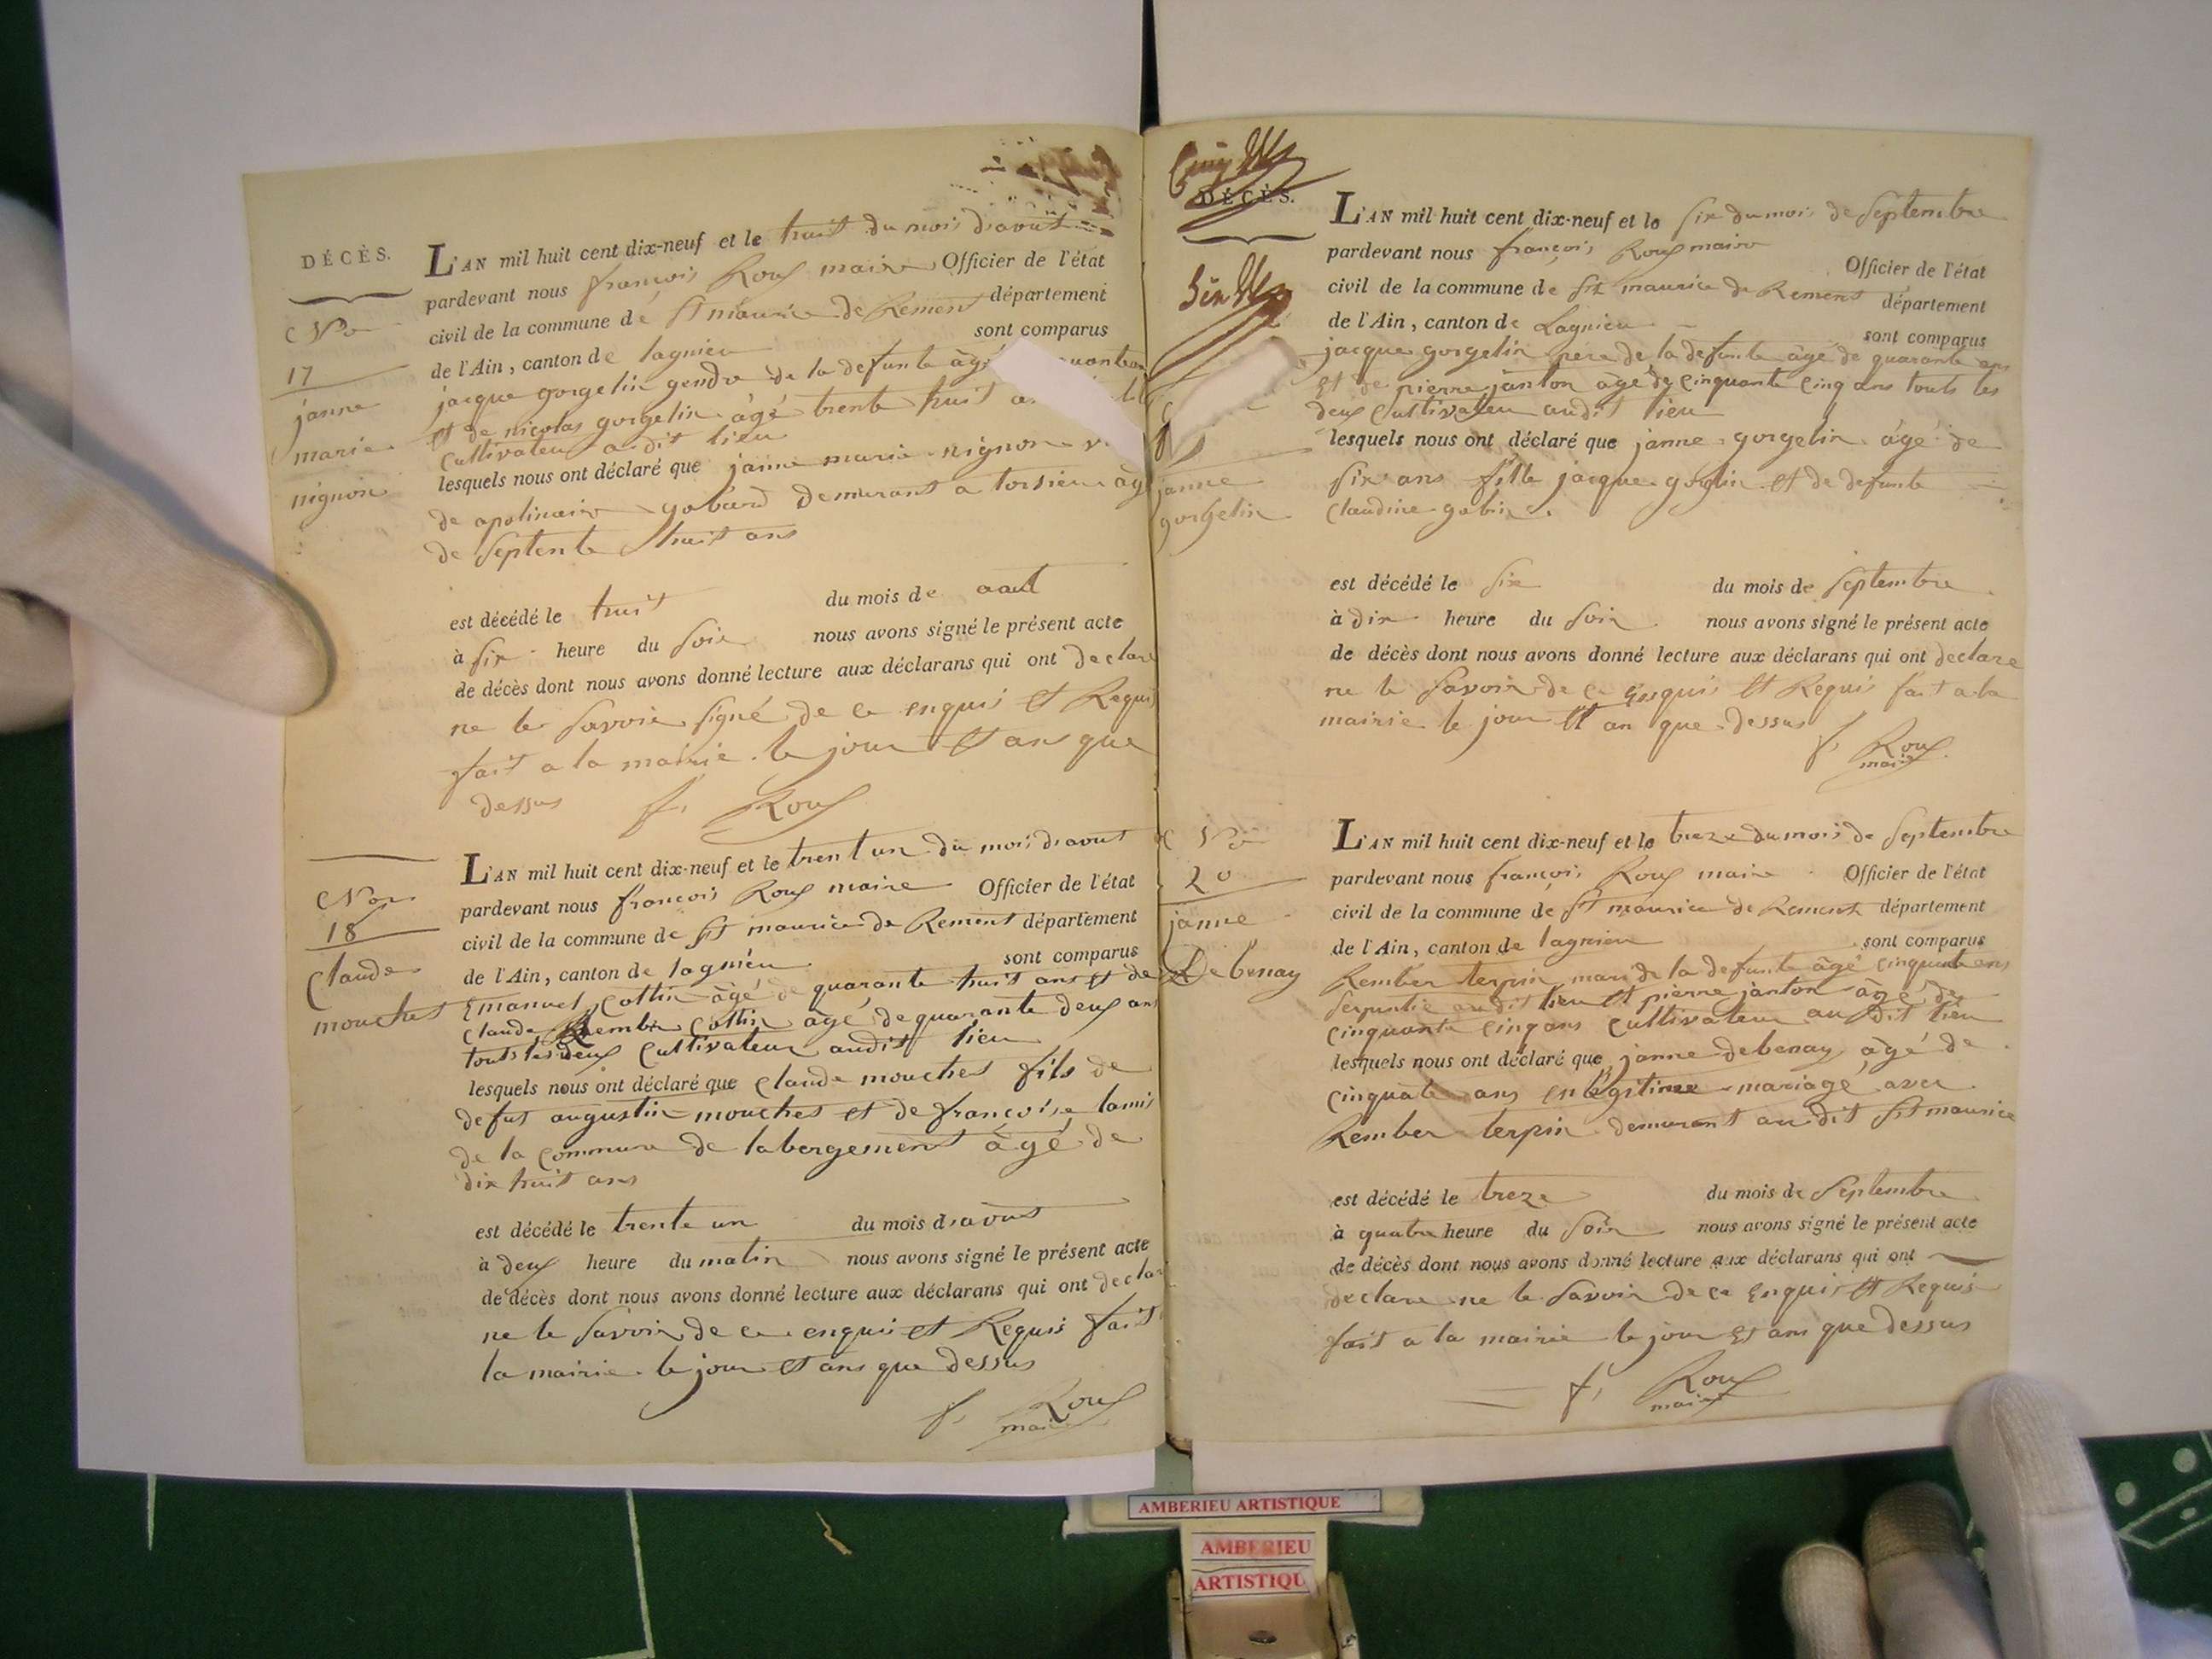 DÉCÈS.
No
17
janne
marie
nignon
L'AN mil huit cent dix-neuf et le huit du mois d'avout
pardevant nous françois Roux maire Officier de l'état
civil de la commune de St maurice de Remens département
de l'Ain, canton de lagnieu sont comparus
jacque gorgelin gendre de la defunte âgé
et de nicolas gorgelin âgé trente huit
cultivateur audit lieu
lesquels nous ont déclaré que janne marie nignon
de apolinaire gobard demurant a torsieu
de septente huit ans
est décédé le huit du mois de aout
à six heure du soir nous avons signé le présent acte
de décès dont nous avons donné lecture aux déclarans qui ont declare
ne le savoir signé de ce enquis et Requis
fait a la mairie le jour et ans que
dessus f. Roux
No
18
Claude
mouches
L'AN mil huit cent dix-neuf et le trent un du mois d'avout
pardevant nous françois Roux maire Officier de l'état
civil de la commune de St maurice de Remens département
de l'Ain, canton de lagnieu sont comparus
Emanuel Cottin âgé de quarante huit ans et de
Claude Rember Cottin âgé de quarante deux ans
touts les deux Cultivateur audit lieu
lesquels nous ont déclaré que Claude mouches fils de
defut augustin mouches et de françoise lamis
de la commune de labergement âgé de
dix huit ans
est décédé le trente un du mois d'avout
à deux heure du matin nous avons signé le présent acte
de décès dont nous avons donné lecture aux déclarans qui ont
ne le savoir de ce enquis et Requis fait
la mairie le jour et ans que dessus
f. Roux
maire
DÉCÈS.
janne
gorgelin
L'AN mil huit cent dix-neuf et le six du mois de Septembre
pardevant nous françois Roux maire Officier de l'état
civil de la commune de St maurice de Remens département
de l'Ain, canton de Lagnieu sont comparus
jacque gorgelin pere de la defunte âgé de quarante ans
et de pierre janton âgé de cinquante cinq ans touts les
deux Cultivateur audit lieu
lesquels nous ont déclaré que janne gorgelin âgé de
six ans fille jacque et de defunte
Claudine gobin
est décédé le six du mois de Septembre
à dix heure du soir nous avons signé le présent acte
de décès dont nous avons donné lecture aux déclarans qui ont declare
ne le savoir de ce Enquis et Requis fait a la
mairie le jour et an que dessus
f. Roux
maire
No
20
janne
Debenay
L'AN mil huit cent dix-neuf et le treze du mois de Septembre
pardevant nous françois Roux maire Officier de l'état
civil de la commune de St maurice de Remens département
de l'Ain, canton de lagnieu sont comparus
Rember terpin mari de la defunte âgé cinquente ans
audit lieu et pierre janton âgé de
cinquante cinq ans cultivateur au dit lieu
lesquels nous ont déclaré que janne debenay âgé de
cinquate ans en legitime mariage avec
Rember terpin demurant au dit St maurice
est décédé le treze du mois de Septembre
à quatre heure du soir nous avons signé le présent acte
de décès dont nous avons donné lecture aux déclarans qui ont
declare ne le savoir de ce Enquis et Requis
fait a la mairie le jour et ans que dessus
f. Roux
maire
AMBERIEU ARTISTIQUE
AMBERIEU
ARTISTIQU